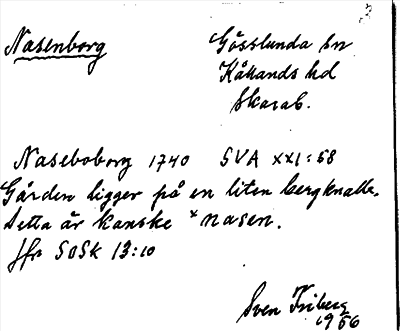 Nasenborg
Gösslunda sn
Kållands hd
Skarab.
Naseboborg 1740 SVA XXI:58
Gården ligger på en liten bergknalle.
Detta är kanske *nasen.
Jfr SOSk 13:10
Sven Friberg
1956